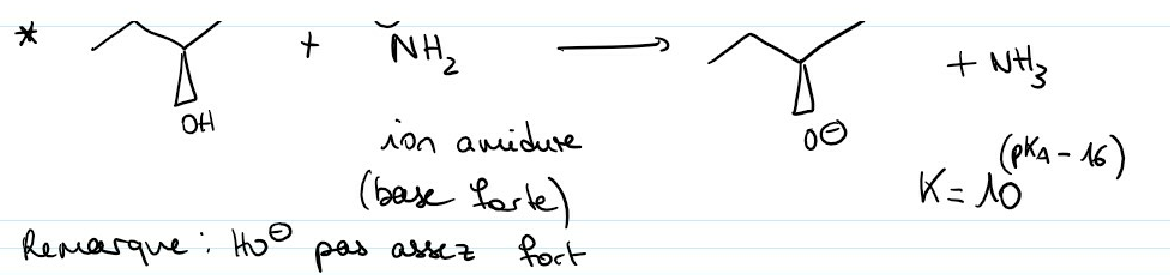 * + NH₂ → + NH₃
OH O⊖
ion amidure
(base forte) K = 10^(pKA - 16)
Remarque : HO⊖ pas assez fort